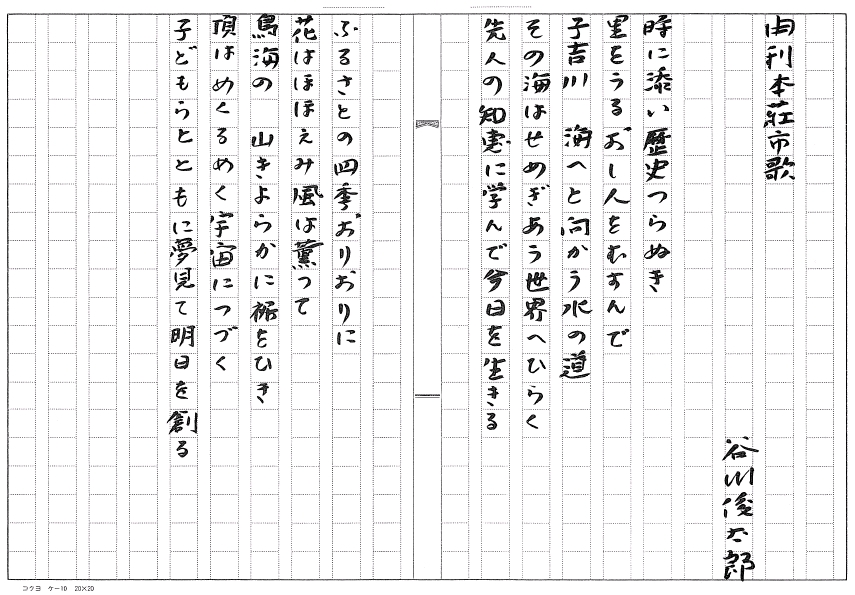 由利本荘市歌
谷川俊太郎
時に添い歴史つらぬき
里をうるおし人をむすんで
子吉川　海へと向かう水の道
その海はせめぎあう世界へひらく
先人の知恵に学んで今日を生きる
ふるさとの四季おりおりに
花はほほえみ風は薫って
鳥海の　山きよらかに裾をひき
頂はめくるめく宇宙につづく
子どもらとともに夢見て明日を創る
コクヨ　ケー10　20×20